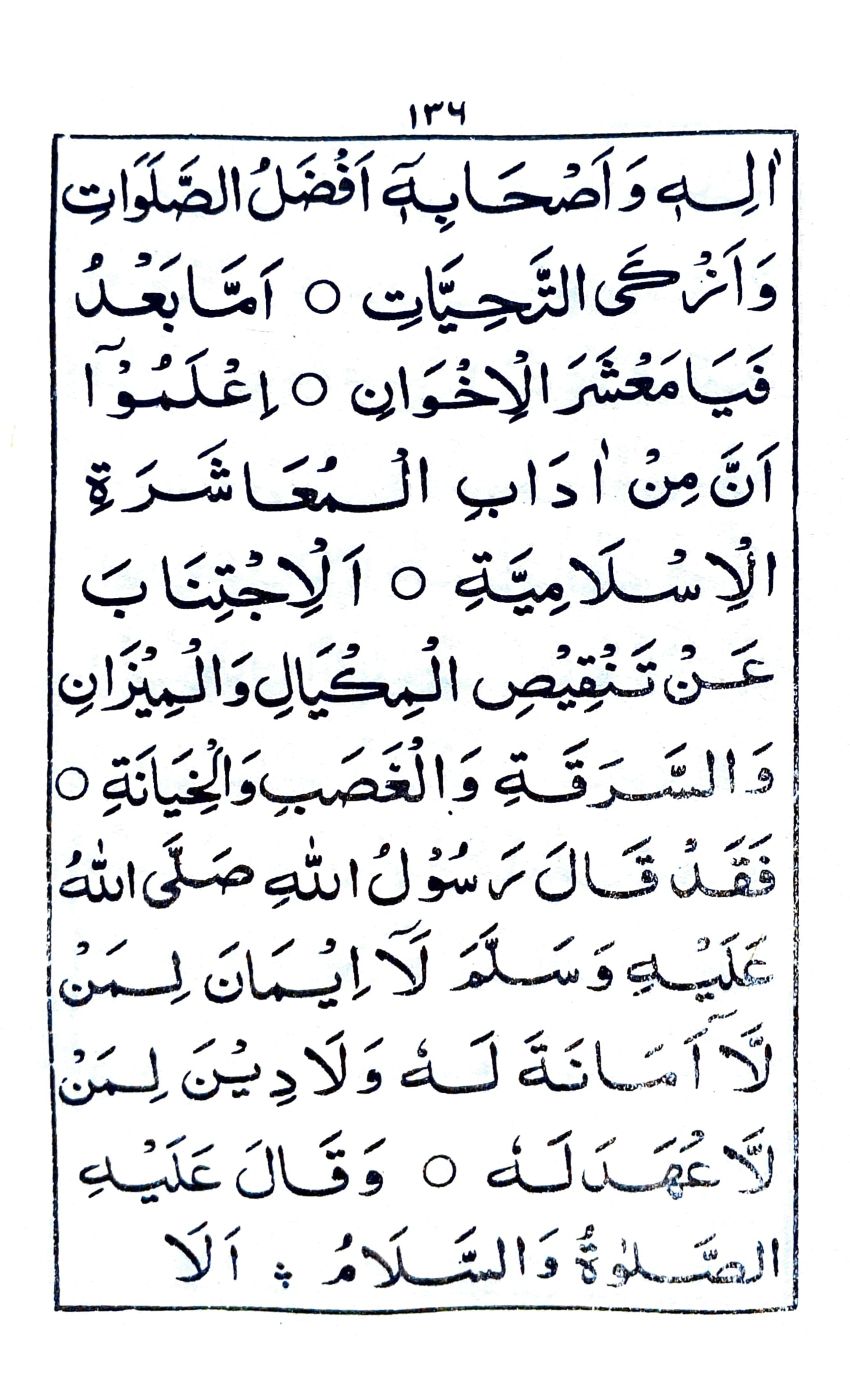 ١٣٦
اٰلِـهٖ وَاَصْحَابِهٖٓ اَفْضَلُ الصَّلَوَاتِ
وَاَزْكَى التَّحِيَّاتِ ○ اَمَّا بَعْدُ
فَيَا مَعْشَرَ الْاِخْوَانِ ○ اِعْلَمُوْٓا
اَنَّ مِنْ اٰدَابِ الْمُعَاشَرَةِ
الْاِسْلَامِيَّةِ ○ اَلْاِجْتِنَابَ
عَنْ تَنْقِيْصِ الْمِكْيَالِ وَالْمِيْزَانِ
وَالسَّرَقَةِ وَالْغَصَبِ وَالْخِيَانَةِ ○
فَقَدْ قَالَ رَسُوْلُ اللّٰهِ صَلَّى اللّٰهُ
عَلَيْهِ وَسَلَّمَ لَآ اِيْمَانَ لِمَنْ
لَّآ اَمَانَةَ لَهٗ وَلَا دِيْنَ لِمَنْ
لَّا عَُهَدَ لَهٗ ○ وَقَالَ عَلَيْهِ
الصَّلٰوةُ وَالسَّلَامُ ؞ اَلَا